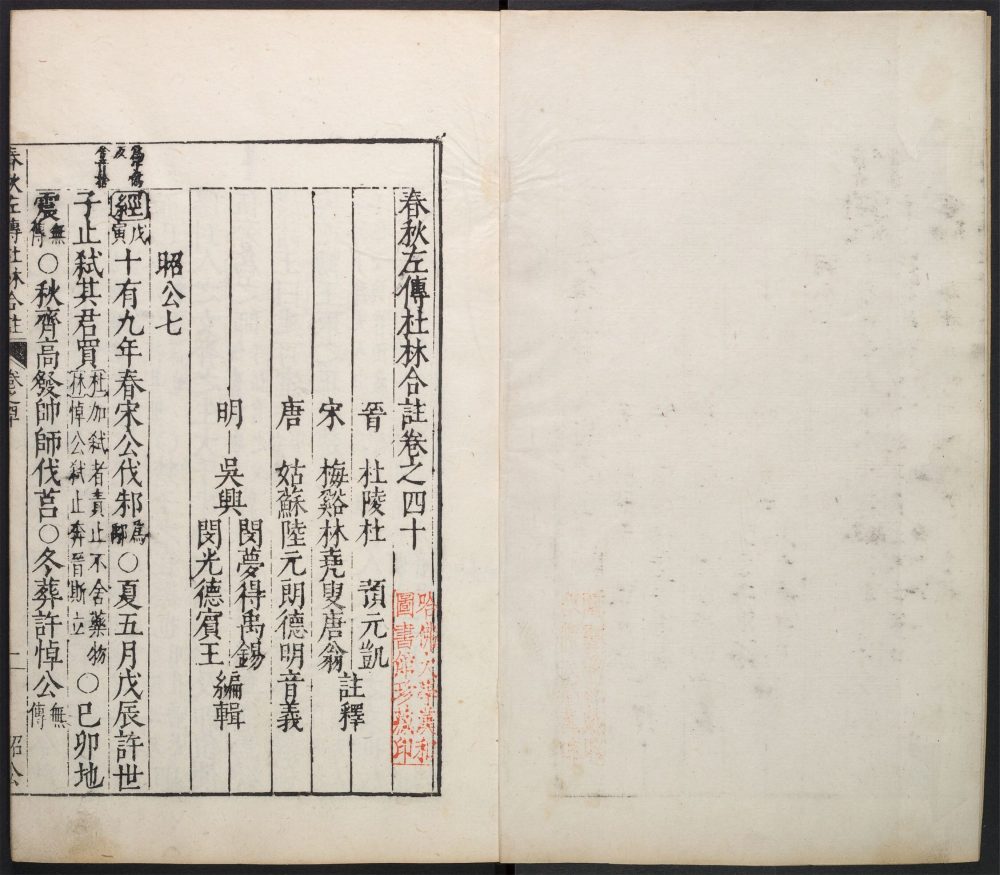 春秋左傳杜林合註卷之四十
哈佛大學漢和
圖書館珍藏印
晉 杜陵杜 預元凱
宋 梅谿林堯叟唐翁
註釋
唐 姑蘇陸元朗德明音義
明 吳興
閔夢得禹錫
閔光德賓王
編輯
昭公七
經戊寅十有九年春宋公伐邾為鄅○夏五月戊辰許世
子止弒其君買杜加弒者責止不舍藥物林悼公弒止奔晉斯立○己卯地
震無傳○秋齊高發帥師伐莒○冬葬許悼公無傳
春秋左傳杜林合註 昭公